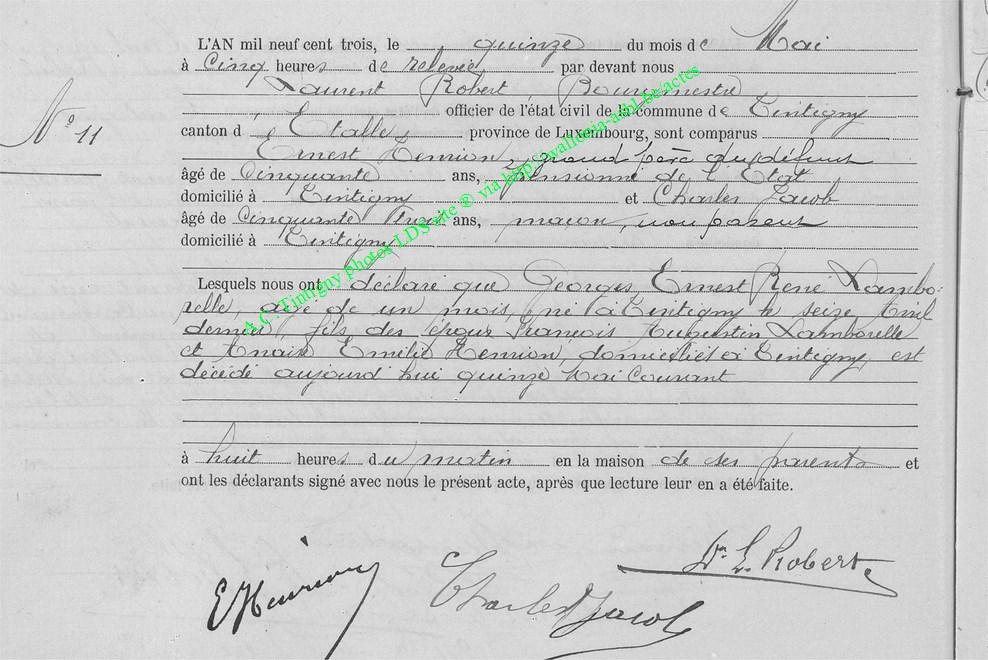 L'AN mil neuf cent trois, le quinze du mois de Mai
à Cinq heures de relevée par devant nous
Laurent Robert, Bourgmestre
officier de l'état civil de la commune de Tintigny
N° 11
canton d'Etalle, province de Luxembourg, sont comparus
Ernest Henrion, grand père du défunt
âgé de Cinquante ans, pensionné de l'Etat
domicilié à Tintigny et Charles Jacob
âgé de Cinquante trois ans, maçon, non parent
domicilié à Tintigny
Lesquels nous ont déclaré que Georges Ernest René Lambo-
relle, âgé de un mois, né à Tintigny le seize Avril
dernier, fils des époux François Augustin Lamborelle
et Anaïs Emélie Henrion, domiciliés à Tintigny, est
décédé aujourd'hui quinze Mai Courant
à huit heures du matin en la maison de ses parents et
ont les déclarants signé avec nous le présent acte, après que lecture leur en a été faite.
A.C. Tintigny photos LDS site ® via http://wallonia-asbl.be/actes
Dr L. Robert
E Henrion
Charles Jacob